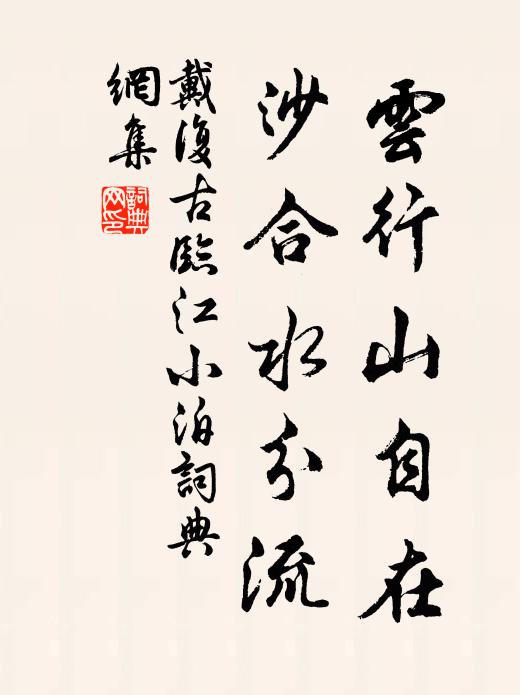 雲行山自在
沙合水分流
戴復古臨江小泊詞典
網集
詞典網印